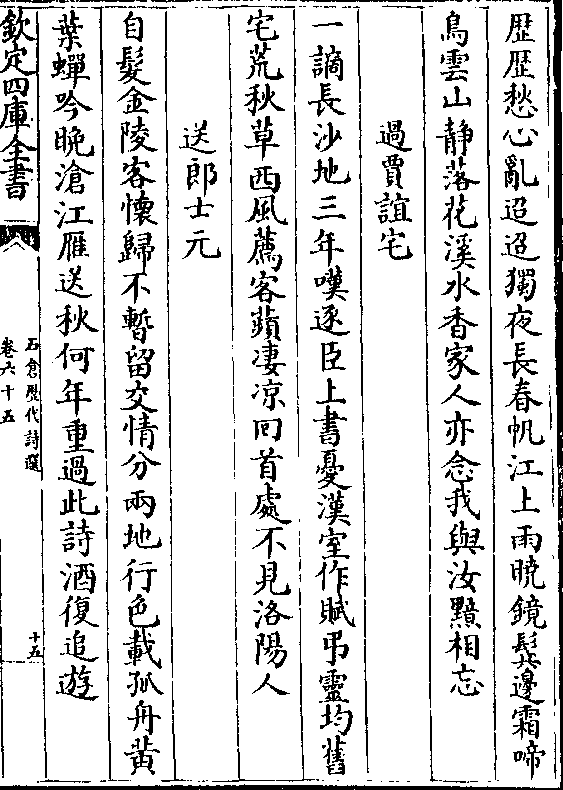 歴歴愁心亂迢迢獨夜長春帆江上雨曉鏡鬂邊霜啼
鳥雲山静落花溪水香家人亦念我與汝黯相忘
過賈誼宅
一謫長沙地三年嘆逐臣上書憂漢室作賦弔靈均舊
宅荒秋草西風薦客蘋凄凉回首處不見洛陽人
送郎士元
自髮金陵客懷歸不暫留交情分兩地行色載孤舟黄
葉蟬吟晚滄江雁送秋何年重過此詩酒復追遊
欽定四庫全書
石倉歴代詩選
卷六十五
十五